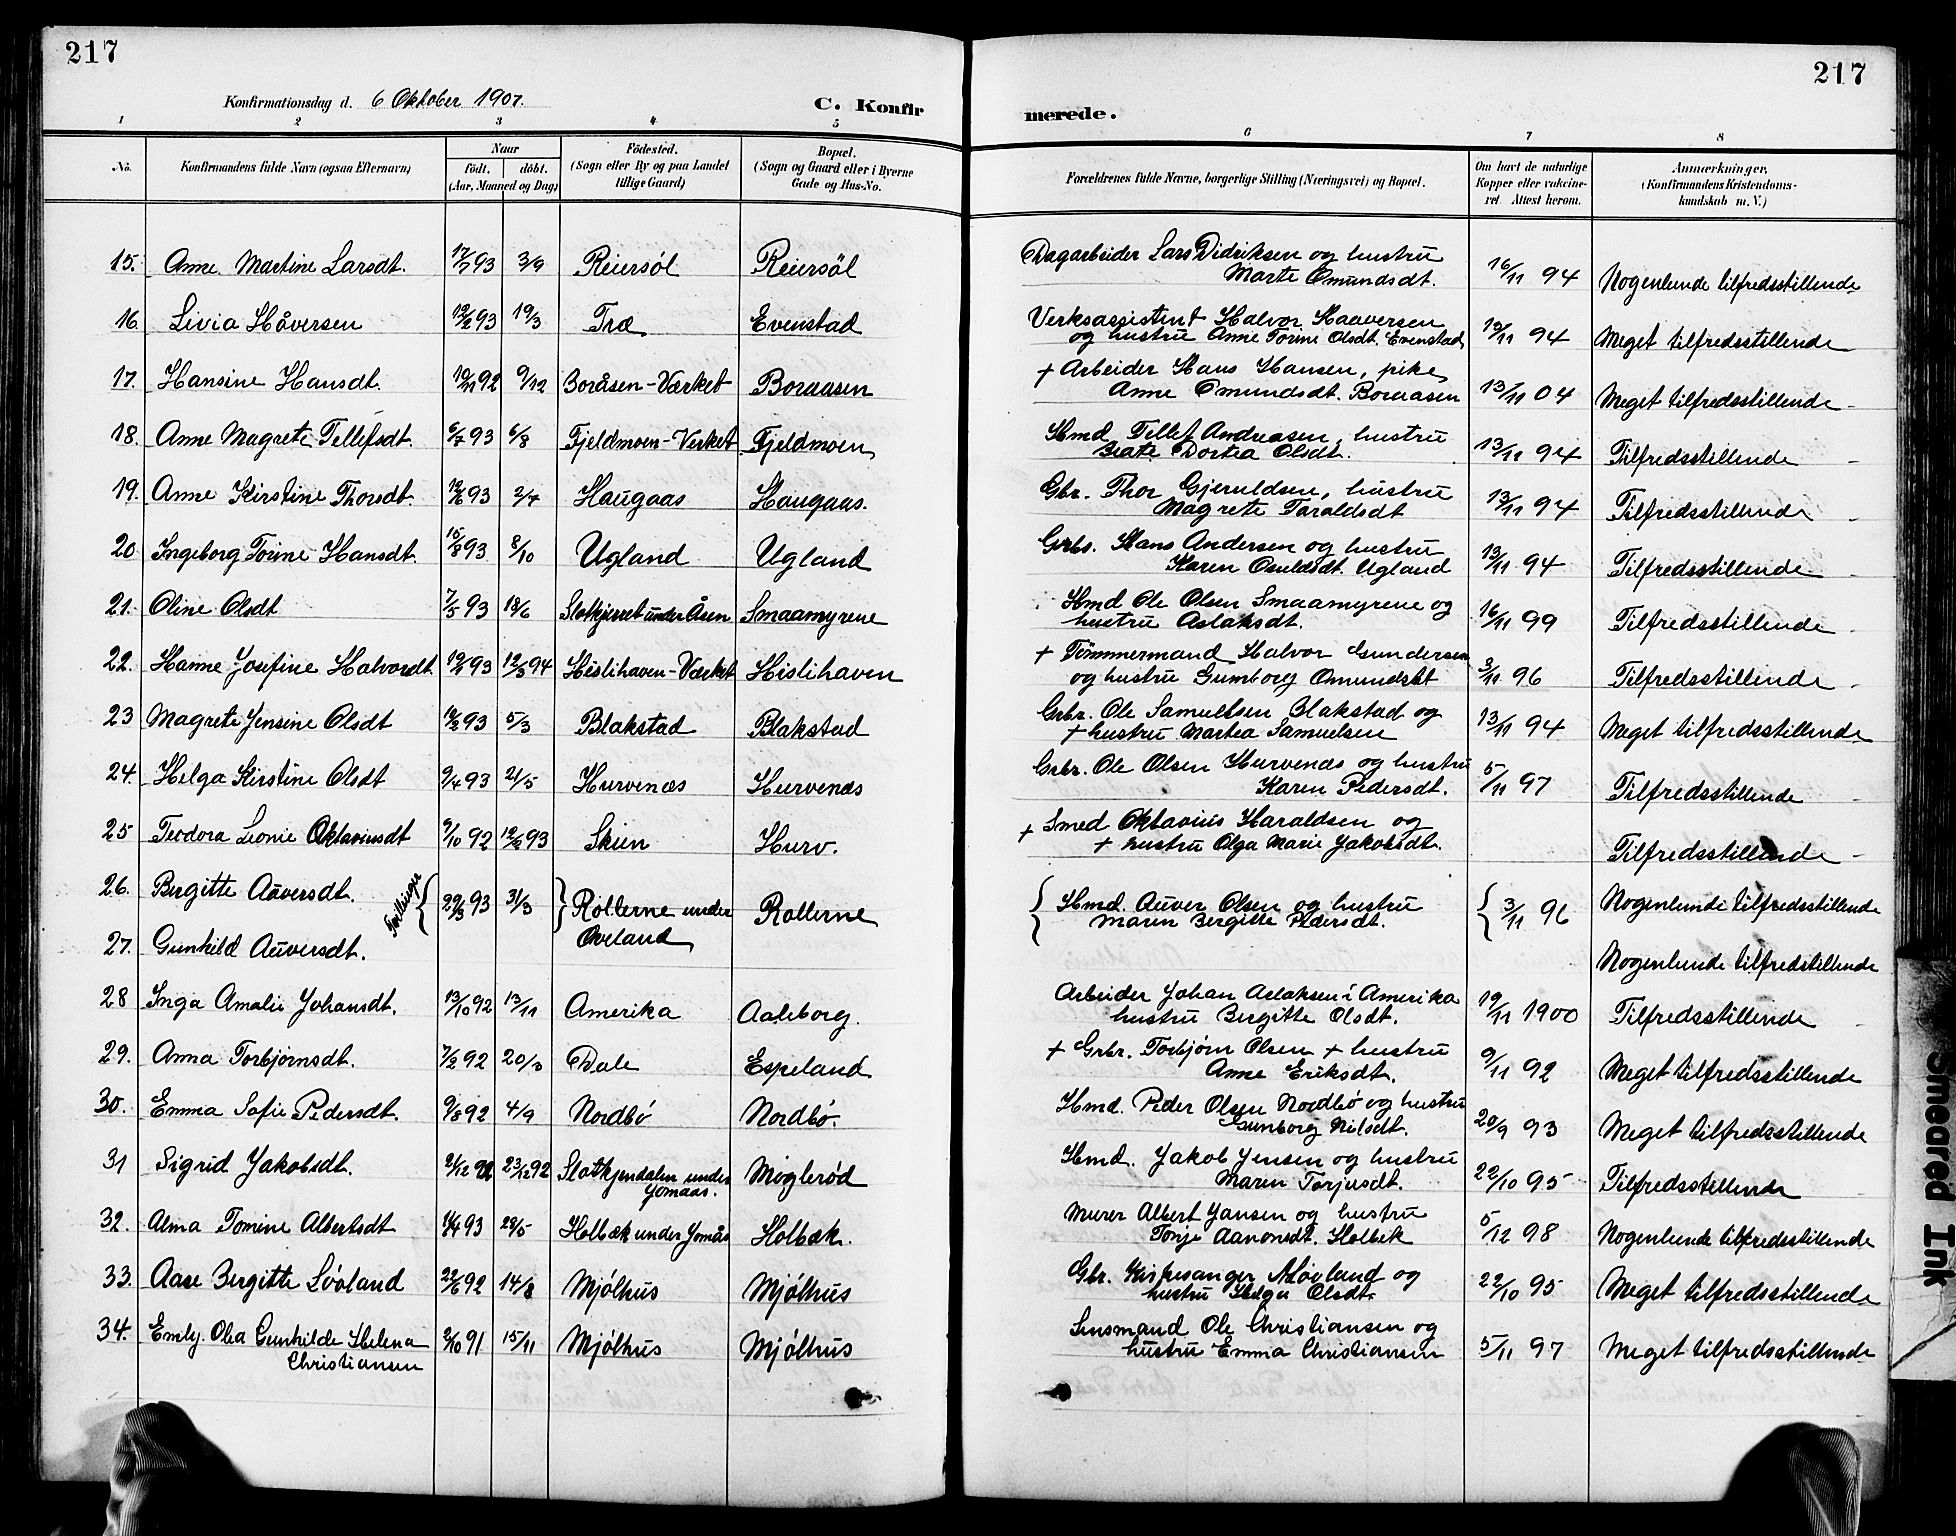 217
217
Konfirmationsdag d. 6 Oktober 1907.
C. Konfir
merede.
1 2 3 4 5 6 7 8
No.
Konfirmandens fulde Navn (ogsaa Efternavn)
Naar
født. døbt.
(Aar, Maaned og Dag)
Fødested.
(Sogn eller By og paa Landet
tillige Gaard)
Bopæl.
(Sogn og Gaard eller i Byerne
Gade og Hus-No.
Forældrenes fulde Navne, borgerlige Stilling (Næringsvei) og Bopæl.
Om havt de naturlige
Kopper eller vakcine-
ret Attest herom.
Anmærkninger.
(Konfirmandens Kristendoms-
kundskab m. V.)
15. Anne Martine Larsdt. 17/7 93 3/9 Reiersöl Reiersöl Dagarbeider Lars Didriksen og hustru
Marte Omundsdt. 16/11 94 Nogenlunde tilfredsstillende
16. Livia Håversen 19/3 Træ Evenstad Verksassistent Halvor Haaversen
og hustru Anne Torine Olsdt. Evenstad 13/11 94 Meget tilfredsstillende
17. Hansine Hansdt. 9/12 Boråsen-Værket Boraasen + Arbeider Hans Hansen, pike
Anne Omundsdt. Boraasen 13/11 04 Meget tilfredsstillende
18. Anne Magrete Tellefsdt. 6/7 93 6/8 Fjeldmoen-Verket Fjeldmoen Hmd Tellef Andreasen, hustru
Beate Dortea Olsdt. 13/11 94 Tilfredsstillende
19. Anne Kirstine Thorsdt. 2/7 Haugaas Haugaas. Gbr. Thor Gjeruldsen, hustru
Magrete Taraldsdt 13/11 94 Tilfredsstillende
20 Ingeborg Torine Hansdt. 15/8 93 8/10 Ugland Ugland Grbr. Hans Andersen og hustru
Karen Osuldsdt. Ugland 13/11 94 Tilfredsstillende
21. Oline Olsdt 7/5 93 18/6 Slotkjerret under Åsen Smaamyrene Hmd Ole Olsen Smaamyrene og
hustru Aslaksdt. 16/11 99 Tilfredsstillende
22. Hanne Josefine Halvorsdt 12/3 94 Hislihaven-Værket Hislihaven + Tømmermand Halvor Gundersen
og hustru Gumborg Omundsdt 3/11 96 Tilfredsstillende
23 Magrete Jensine Olsdt 5/3 Blakstad Blakstad Grbr. Ole Samuelsen Blakstad og
+ hustru Martea Samuelsen 13/11 94 Meget tilfredsstillende
24. Helga Kirstine Olsdt 9/4 93 21/5 Hurvenæs Hurvenæs Grbr. Ole Olsen Hurvenæs og hustru
Karen Pedersdt. 5/11 97 Tilfredsstillende
25 Teodora Leonie Oktaviusdt 9/10 92 12/2 93 Skien Hurv. + Smed Oktavius Haraldsen og
+ hustru Olga Marie Jakobsdt. Tilfredsstillende
26. Birgitte Auversdt. Tvillinger 29/3 93 31/3 Rollerne under
Oveland Rollerne Hmd. Auver Olsen og hustru
Maren Bergitte Pedersdt. 3/11 96 Nogenlunde tilfredsstillende
27. Gunhild Auversdt. Nogenlunde tilfredstillende
28 Inga Amalie Johansdt. 13/10 92 13/11 Amerika Aaleborg. Arbeider Johan Aslaksen i Amerika
hustru Bergitte Olsdt. 19/11 1900 Tilfredsstillende
29. Anna Torbjørnsdt. 7/2 92 20/3 Dale Espeland + Grbr. Torbjørn Olsen + hustru
Anne Eriksdt. 9/11 92 Meget tilfredsstillende
30. Emma Sofie Pedersdt. 9/8 92 4/9 Nordbö Nordbö. Hmd. Peder Olsen Nordbö og hustru
Gunborg Nilsdt. 20/9 93 Meget tilfredsstillende
31 Sigrid Jakobsdt. 23/12 92 Slotkjendalen under
Jomaas. Moglerød Hmd. Jakob Jensen og hustru
Maren Torjusdt. 22/10 95 Tilfredsstillende
32. Alma Tomine Albertsdt 28/5 Holbæk under Jomås Holbæk. Murer Albert Jansen og hustru
Tonje Aanonsdt. Holbek 5/12 98 Nogenlunde tilfredsstillende
33. Aase Bergitte Lövland 22/6 92 14/8 Mjölhus Mjölhus Gbr. Kirkesanger Lövland og
hustru Helga Olsdt. 22/10 95 Meget tilfredsstillende
34. Emly Olea Gunhilde Helena
Christiansen 2/10 91 15/11 Mjölhus Mjölhus Lensmand Ole Christiansen og
hustru Emma Christiansen 5/11 97 Meget tilfredsstillende
Smeared Ink